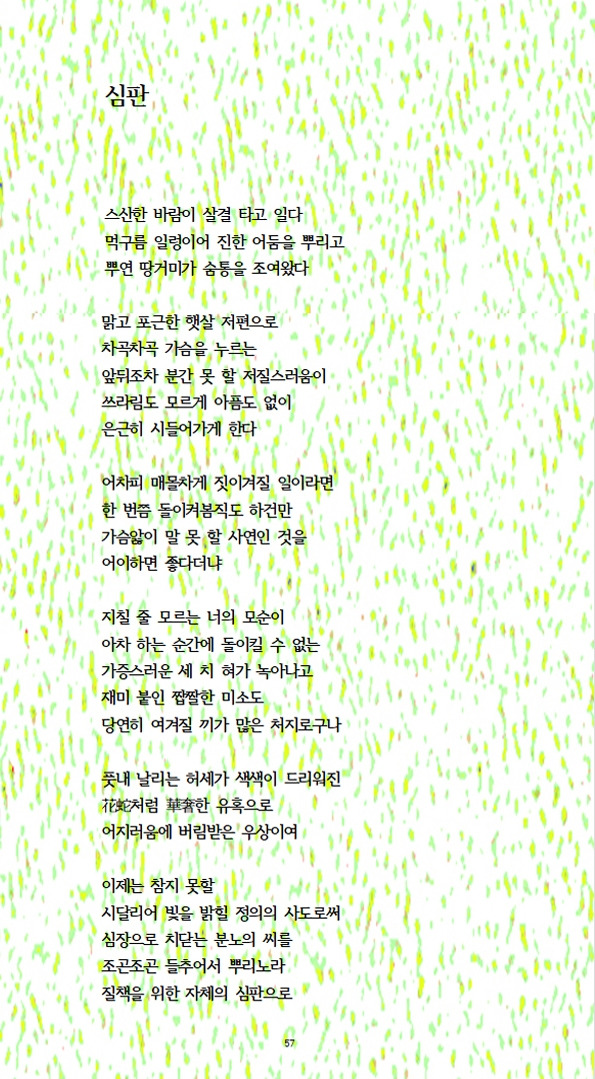 심판
스산한 바람이 살결 타고 일다
먹구름 일렁이어 진한 어둠을 뿌리고
뿌연 땅거미가 숨통을 조여왔다
맑고 포근한 햇살 저편으로
차곡차곡 가슴을 누르는
앞뒤조차 분간 못 할 저질스러움이
쓰라림도 모르게 아픔도 없이
은근히 시들어가게 한다
어차피 매몰차게 짓이겨질 일이라면
한 번쯤 돌이켜봄직도 하건만
가슴앓이 말 못 할 사연인 것을
어이하면 좋다더냐
지칠 줄 모르는 너의 모순이
아차 하는 순간에 돌이킬 수 없는
가증스러운 세 치 혀가 녹아나고
재미 붙인 짭짤한 미소도
당연히 여겨질 끼가 많은 처지로구나
풋내 날리는 허세가 색색이 드리워진
花蛇처럼 華奢한 유혹으로
어지러움에 버림받은 우상이여
이제는 참지 못할
시달리어 빛을 밝힐 정의의 사도로써
심장으로 치닫는 분노의 씨를
조곤조곤 들추어서 뿌리노라
질책을 위한 자체의 심판으로
57